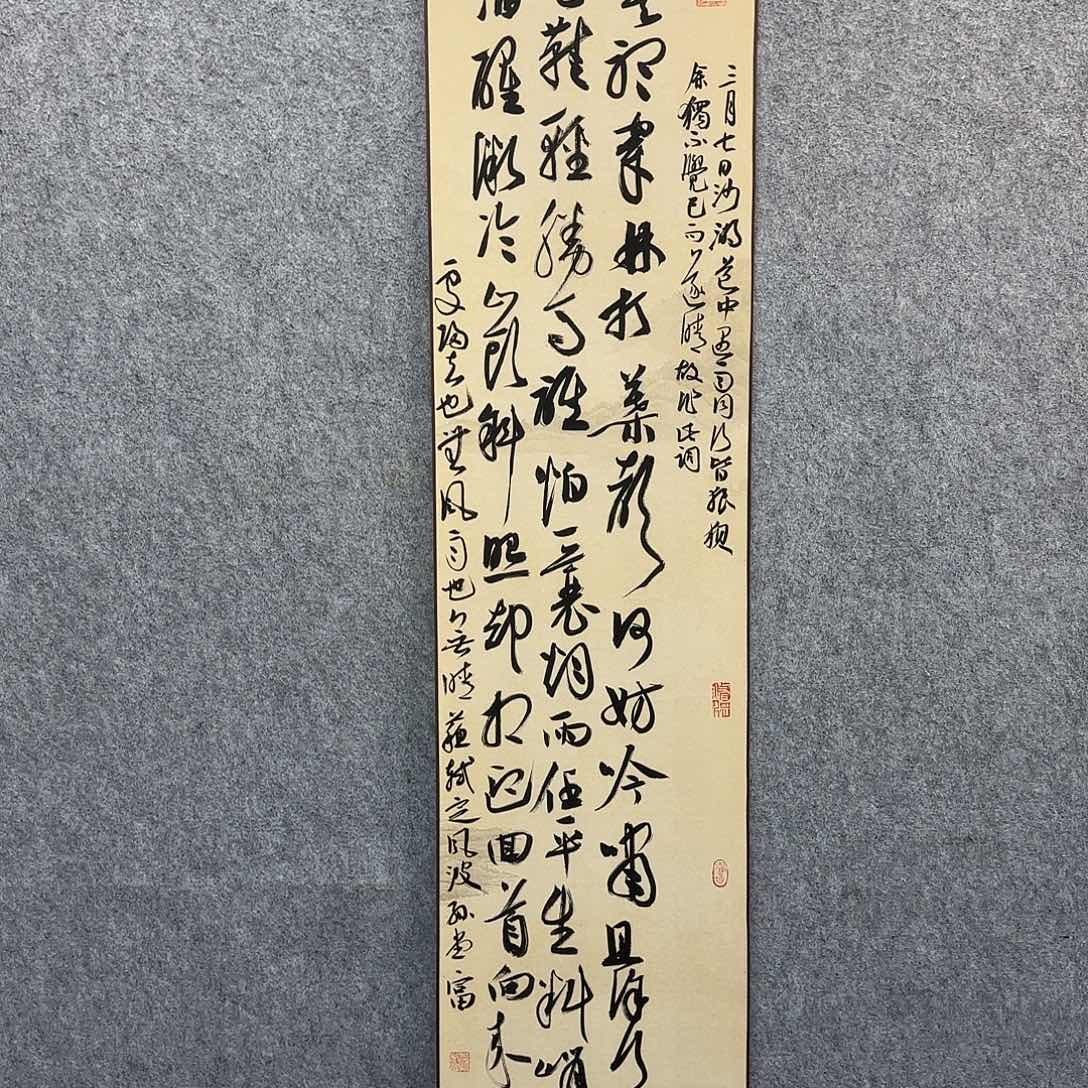 三月七日沙湖道中遇雨同行皆狼狽
余獨不覺已而遂晴故作此詞
聽穿林打葉聲何妨吟嘯且徐行
鞋輕勝馬誰怕一蓑烟雨任平生料峭
酒醒微冷山頭斜照却相迎回首向来
處歸去也無風雨也無晴蘇軾定風波孫富